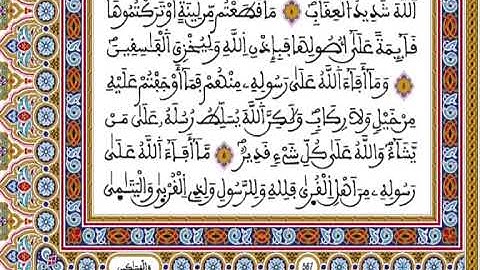 اَللَّهَ شَدِيدُ الْعِقَابِ مَا قَطَعْتُم مِّن لِّينَةٍ اَوْ تَرَكْتُمُوهَا
قَآئِمَةً عَلَىٰٓ أُصُولِهَا فَبِإِذْنِ اِللَّهِ وَلِيُخْزِيَ اَلْفَٰسِقِينَ
وَمَآ أَفَآءَ اَللَّهُ عَلَىٰ رَسُولِهِۦ مِنْهُمْ فَمَآ أَوْجَفْتُمْ عَلَيْهِ
مِنْ خَيْلٍ وَلَا رِكَابٍ وَلَٰكِنَّ اَللَّهَ يُسَلِّطُ رُسُلَهُۥ عَلَىٰ مَنْ
يَّشَآءُ وَاللَّهُ عَلَىٰ كُلِّ شَےْءٍ قَدِيرٌ مَّآ أَفَآءَ اَللَّهُ عَلَىٰ
رَسُولِهِۦ مِنَ اَهْلِ اِلْقُرَىٰ فَلِلهِ وَلِلرَّسُولِ وَلِذِے اِلْقُرْبَىٰ وَالْيَتَٰمَىٰ